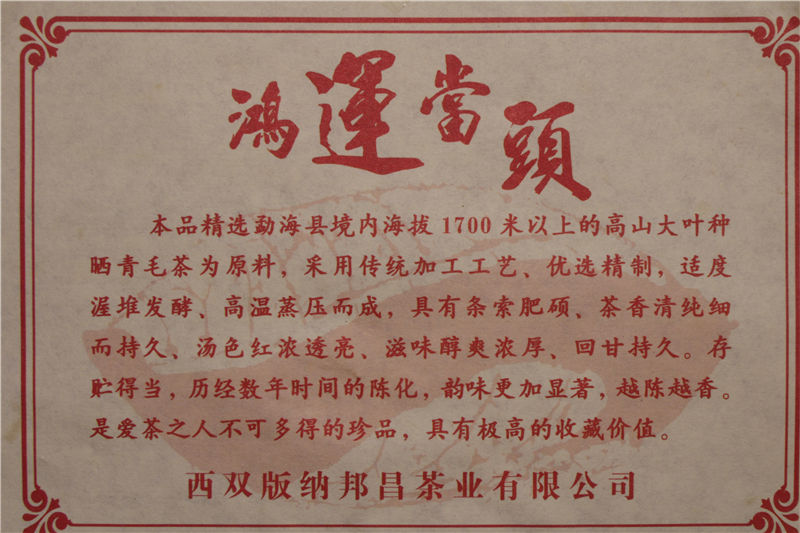 鴻運當頭
本品精选勐海县境内海拔1700米以上的高山大叶种
晒青毛茶为原料，采用传统加工工艺、优选精制，适度
渥堆发酵、高温蒸压而成，具有条索肥硕、茶香清纯细
而持久、汤色红浓透亮、滋味醇爽浓厚、回甘持久。存
贮得当，历经数年时间的陈化，韵味更加显著，越陈越香。
是爱茶之人不可多得的珍品，具有极高的收藏价值。
西双版纳邦昌茶业有限公司